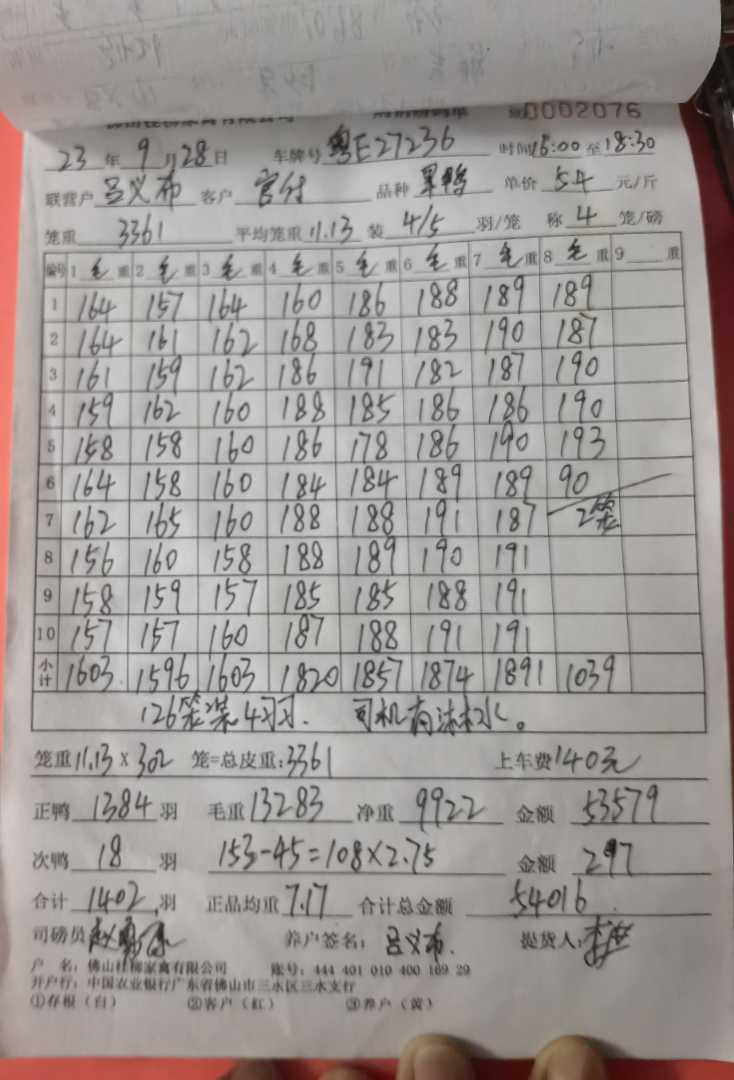 0002076
23年9月28日 车牌号粤E27236 时间16:00至18:30
联营户吕义布 客户官付 品种 单价5.4元/斤
笼重3361 平均笼重11.13 装4/5羽/笼 称4笼/磅
编号 1毛重 2毛重 3毛重 4毛重 5毛重 6毛重 7毛重 8毛重 9重
1 164 157 164 160 186 188 189 189
2 164 161 162 168 183 183 190 187
3 161 159 162 186 191 182 187 190
4 159 162 160 188 185 186 186 190
5 158 158 160 186 178 186 190 193
6 164 158 160 184 184 189 189 90
7 162 165 160 188 188 191 187 2笼
8 156 160 158 188 189 190 191
9 158 159 157 185 185 188 191
10 157 157 160 187 188 191 191
小计 1603 1596 1603 1820 1857 1874 1891 1039
126笼装4羽. 司机有淋水。
笼重11.13×302笼=总皮重:3361 上车费140元
正鸭1384羽 毛重13283 净重9922 金额53579
次鸭18羽 153-45=108×2.75 金额297
合计1402羽 正品均重7.17 合计总金额54016
司磅员 养户签名:吕义布. 提货人:
户 名:佛山桂柳家禽有限公司 账号:444 401 010 400 169 29
开户行:中国农业银行广东省佛山市三水区三水支行
①存根(白) ②客户(红) ③养户(黄)